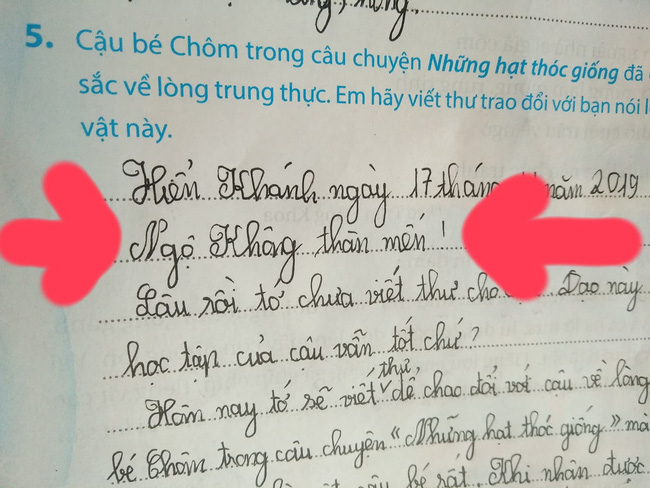 rộng, mừng,
5. Cậu bé Chôm trong câu chuyện Những hạt thóc giống đã
sắc về lòng trung thực. Em hãy viết thư trao đổi với bạn nói
vật này.
Hiển Khánh ngày 17 tháng năm 2019
Ngộ Không thân mến!
Lâu rồi tớ chưa viết thư cho Dạo này
học tập của cậu vẫn tốt chứ?
Hôm nay tớ sẽ viết thư để chao đổi với cậu về lòng
bé Chôm trong câu chuyện "Những hạt thóc giống" mà
bé rất. Khi nhận được